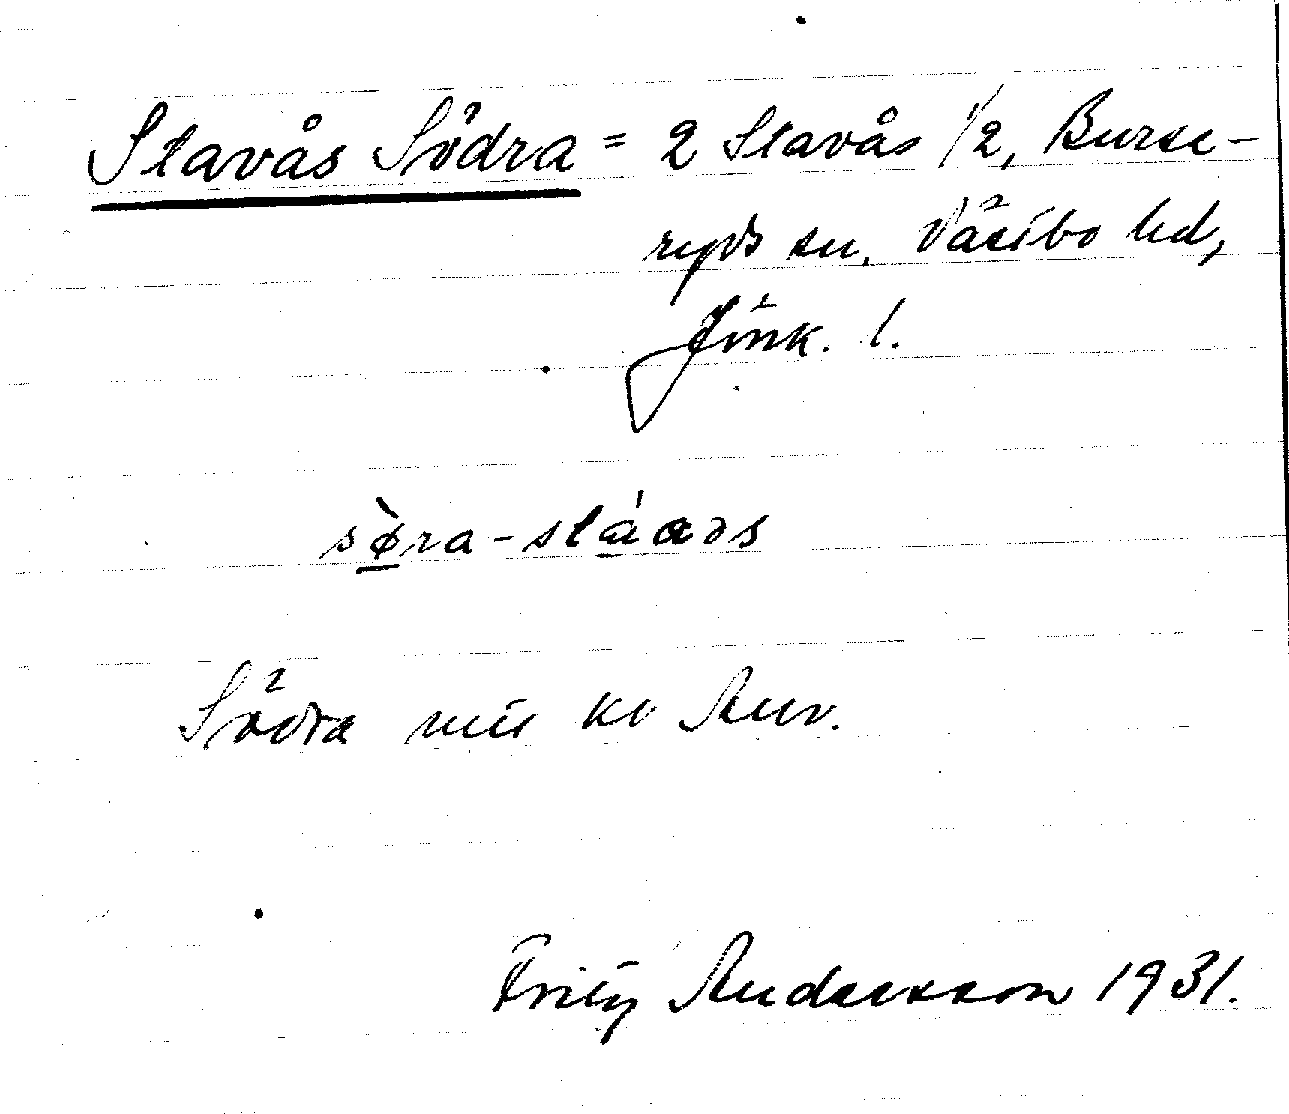 Stavås Södra = 2 Stavås 1/2, Burse-
ryds sn, Västbo hd,
Jönk. l.
sø̀ra-stáaəs
Södra
Fritz Andersson 1931.